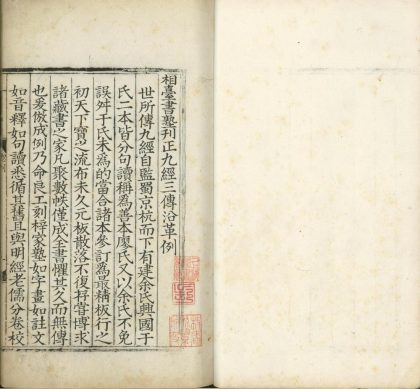 相臺書塾刊正九經三傳沿革例
世所傳九經自監蜀京杭而下有建余氏興國于
氏二本皆分句讀稱為善本廖氏又以余氏不免
誤舛于氏未為的當合諸本參訂為最精板行之
初天下寶之流布未久元板散落不復存嘗博求
諸藏書之家凡聚數帙僅成全書懼其久而無傳
也爰倣成例乃命良工刻梓家塾如字畫如註文
如音釋如句讀悉循其舊且與明經老儒分卷校